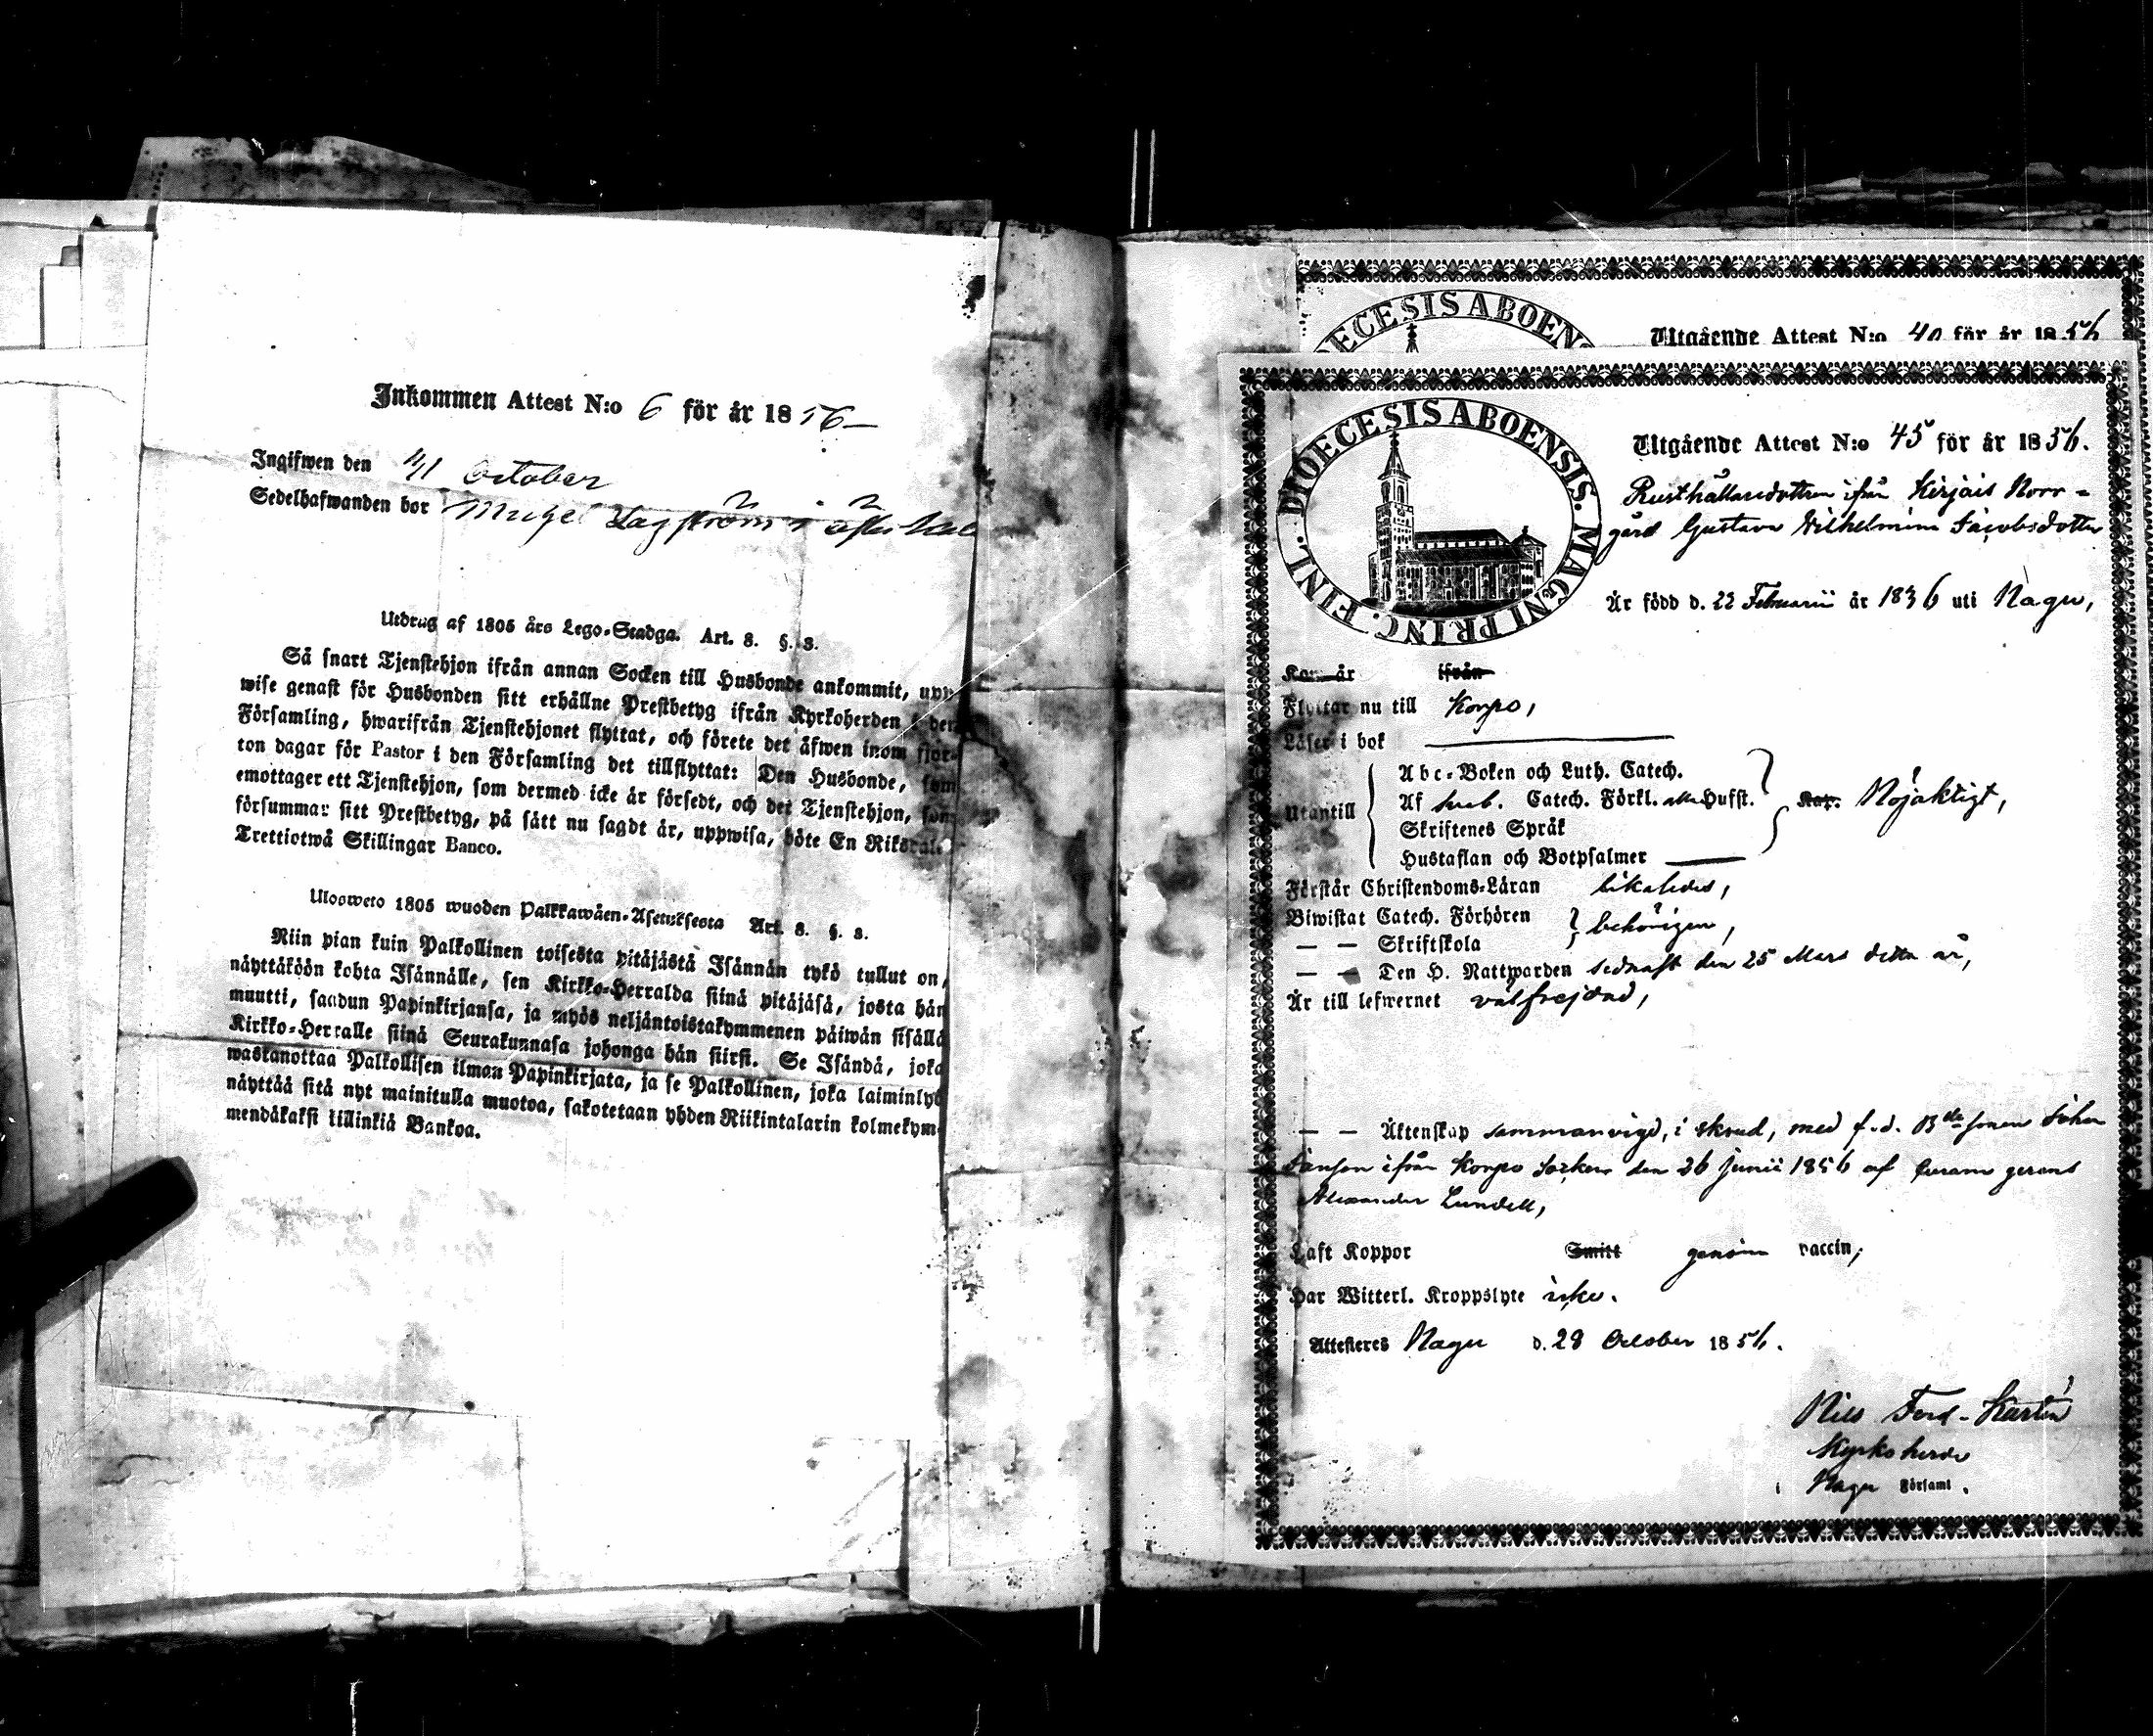 Inkommen Attest N:o 6 för år 1856
Ingifwen den 4/ October
Sedelhafwanden bor Lagström i
Utdrag af 1805 års Lego-Stadga. Art. 8. §. 3.
Så snart Tjenstehjon ifrån annan Socken till Husbonde ankommit, upp
wise genast för Husbonden sitt erhållne Prestbetyg ifrån Kyrkoherden i den
Församling, hwarifrån Tjenstehjonet flyttat, och förete det äfwen inom fjor-
ton dagar för Pastor i den Församling det tillflyttat: Den Husbonde, som
emottager ett Tjenstehjon, som dermed icke är försedt, och det Tjenstehjon, som
försummar sitt Prestbetyg, på sätt nu sagdt är, uppwisa, böte En Riksdale
Trettiotwå Skillingar Banco.
Ulosweto 1805 wuoden Palkkawäen-Asetuksesta Art. 8. §. 3.
Niin pian kuin Palkollinen toisesta pitäjästä Isännän tykö tullut on,
näyttäköön kohta Isännälle, sen Kirkko-Herralda siinä pitäjäsä, josta hän
muutti, saadun Papinkirjansa, ja myös neljäntoistakymmenen päiwän sisällä
Kirkko-Herralle siinä Seurakunnasa johonga hän siirsi. Se Isändä, joka
wastanottaa Palkollisen ilman Papinkirjata, ja se Palkollinen, joka laiminlyö
näyttää sitä nyt mainitulla muotoa, sakotetaan yhden Riikintalarin kolmekym-
mendäkaksi killinkiä Bankoa.
DIOECESIS ABOEN
Utgående Attest N:o 40 för år 1856
DIOECESIS ABOENSIS. MAGNI PRINC. FINL.
Utgående Attest N:o 45 för år 1856.
Rusthållaredottren ifrån Kirjais Norr-
gård Gustava Wilhelmina Jacobsdotter
Är född d. 22 Februarii år 1836 uti Nagu,
Kom år ifrån
Flyttar nu till Korpo,
Läser i bok
Abc-Boken och Luth. Catech.
Utantill Af Sveb. Catech. Förkl. alla Hufst. Kap. Nöjaktigt,
Skriftenes Språk
Hustaflan och Botpsalmer
Förstår Christendoms-Läran likaledes,
Biwistat Catech. Förhören behörigen,
— — Skriftskola
— — Den H. Nattwarden sednast den 25 Mars detta år,
Är till lefwernet välfrejdad,
— — Äktenskap sammanvigd, i skrud, med f.d. Bdesonen Johan
Janson ifrån Korpo Socken den 26 Junii 1856 af Curam gerens
Alexander Lundell,
Haft Koppor Smitt genom vaccin,
Har Witterl. Kroppslyte icke.
Attesteres Nagu d. 28 October 1856.
Nils Ferd.
Kyrkoherde
i Nagu Församl.